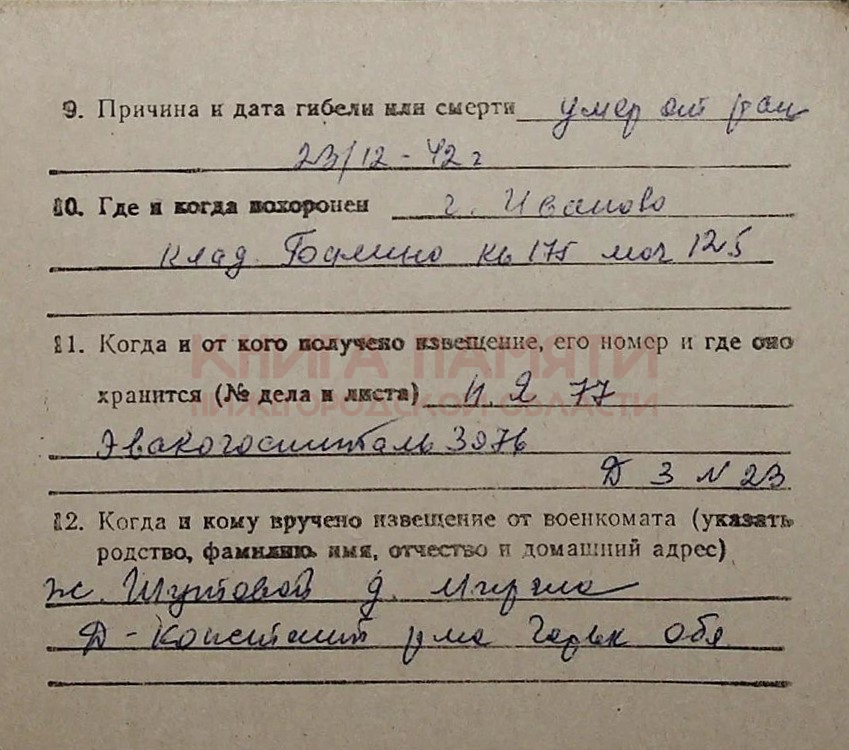 9. Причина и дата гибели или смерти умер от ран
23/12-42г
10. Где и когда похоронен г. Иваново
Клад. Балино кв 175 мог 125
КНИГА ПАМЯТИ
НИЖЕГОРОДСКОЙ ОБЛАСТИ
11. Когда и от кого получено извещение, его номер и где оно
хранится (№ дела и листа) П.Я 77
Эвакогоспиталь 3076
Д 3 N 23
12. Когда и кому вручено извещение от военкомата (указать
родство, фамилию имя, отчество и домашний адрес)
ж. Шутовой д.
Д-Констант Горьк обл